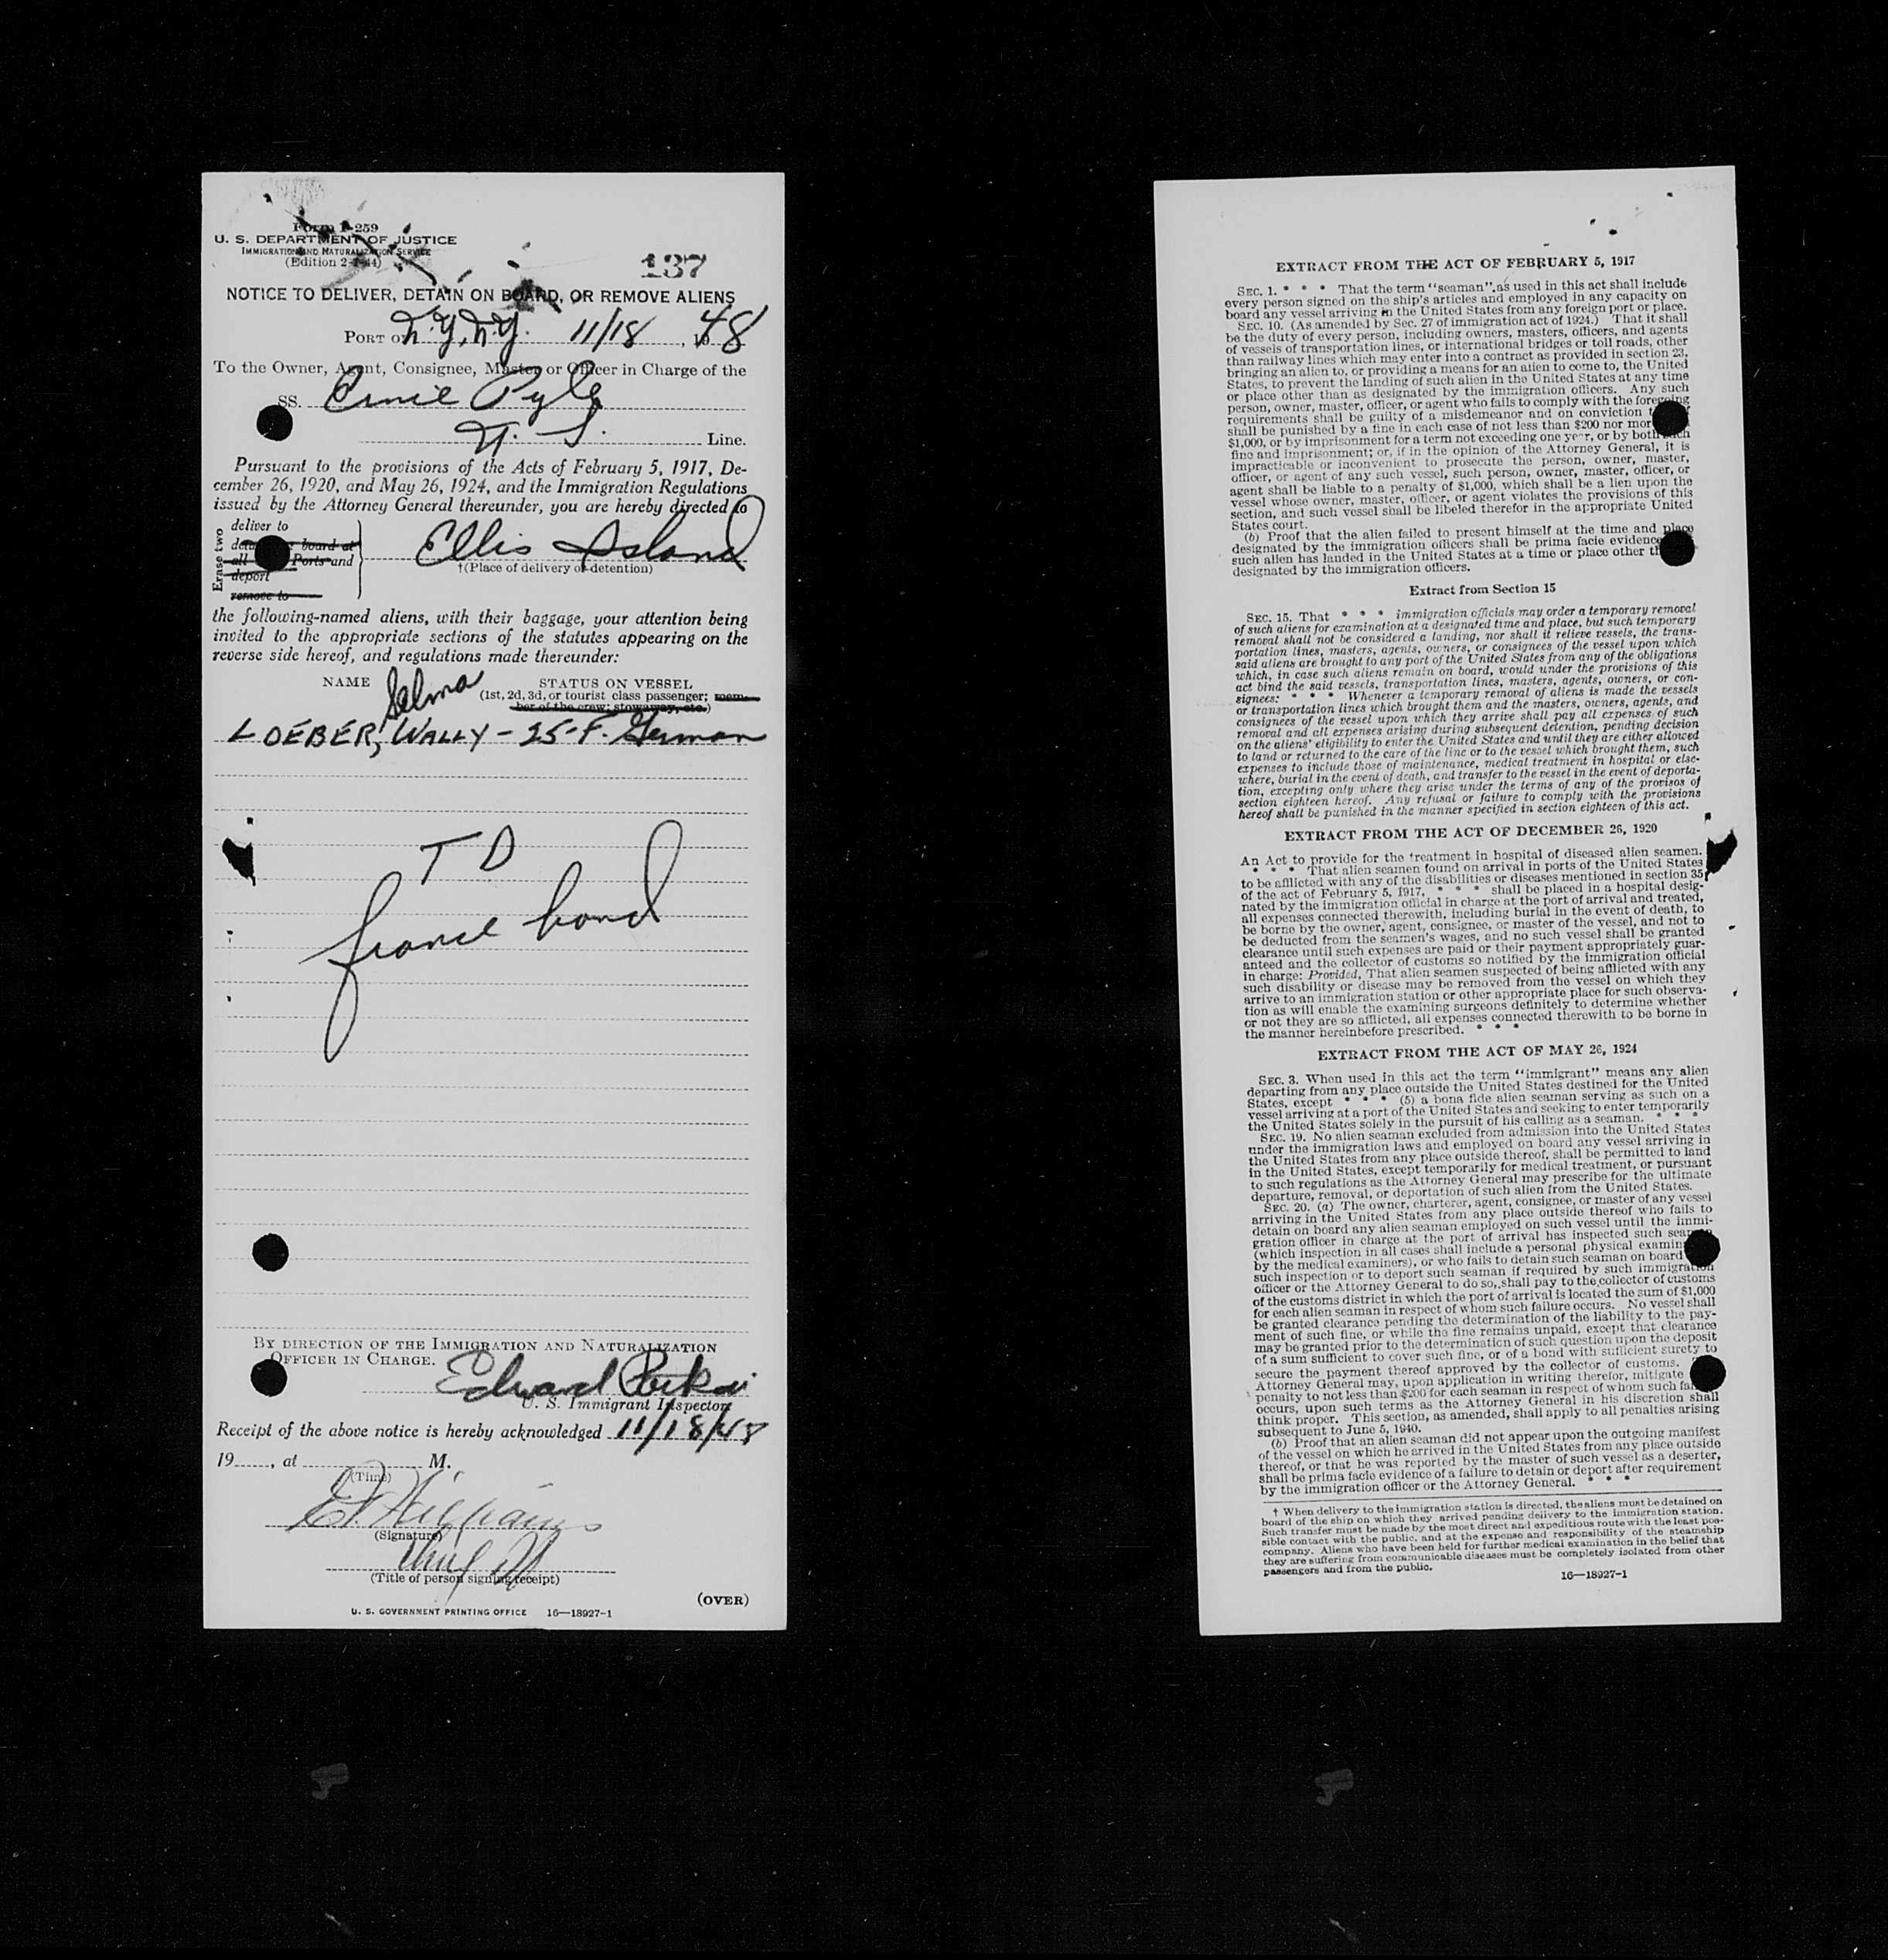 Form I-259
U. S. DEPARTMENT OF JUSTICE
IMMIGRATION AND NATURALIZATION SERVICE
(Edition 2-1-44)
137
NOTICE TO DELIVER, DETAIN ON BOARD, OR REMOVE ALIENS
PORT OF N.Y., N.Y. 11/18, 1948
To the Owner, Agent, Consignee, Master or Officer in Charge of the
SS. Ernie Pyle
U. S. Line.
Pursuant to the provisions of the Acts of February 5, 1917, De-
cember 26, 1920, and May 26, 1924, and the Immigration Regulations
issued by the Attorney General thereunder, you are hereby directed to
Erase two
deliver to
board at
all Ports and
deport
remove to
Ellis Island
†(Place of delivery or detention)
the following-named aliens, with their baggage, your attention being
invited to the appropriate sections of the statutes appearing on the
reverse side hereof, and regulations made thereunder:
NAME STATUS ON VESSEL
(1st, 2d, 3d, or tourist class passenger; mem-
ber of the crew; stowaway, etc.)
Selma
LOEBER, WALLY - 25-F. German
T D
bond
BY DIRECTION OF THE IMMIGRATION AND NATURALIZATION
OFFICER IN CHARGE.
Edward
U. S. Immigrant Inspector
Receipt of the above notice is hereby acknowledged 11/18/48
19....., at .................... M.
(Time)
Williams
(Signature)
(Title of person signing receipt)
(OVER)
U. S. GOVERNMENT PRINTING OFFICE 16—18927-1
EXTRACT FROM THE ACT OF FEBRUARY 5, 1917
SEC. 1. * * * That the term "seaman" as used in this act shall include
every person signed on the ship's articles and employed in any capacity on
board any vessel arriving in the United States from any foreign port or place.
SEC. 10. (As amended by Sec. 27 of immigration act of 1924.) That it shall
be the duty of every person, including owners, masters, officers, and agents
of vessels of transportation lines, or international bridges or toll roads, other
than railway lines which may enter into a contract as provided in section 23,
bringing an alien to, or providing a means for an alien to come to, the United
States, to prevent the landing of such alien in the United States at any time
or place other than as designated by the immigration officers. Any such
person, owner, master, officer, or agent who fails to comply with the foregoing
requirements shall be guilty of a misdemeanor and on conviction
shall be punished by a fine in each case of not less than $200 nor mor
$1,000, or by imprisonment for a term not exceeding one year, or by both such
fine and imprisonment; or, if in the opinion of the Attorney General, it is
impracticable or inconvenient to prosecute the person, owner, master,
officer, or agent of any such vessel, such person, owner, master, officer, or
agent shall be liable to a penalty of $1,000, which shall be a lien upon the
vessel whose owner, master, officer, or agent violates the provisions of this
section, and such vessel shall be libeled therefor in the appropriate United
States court.
(b) Proof that the alien failed to present himself at the time and place
designated by the immigration officers shall be prima facie evidence
such alien has landed in the United States at a time or place other th
designated by the immigration officers.
Extract from Section 15
SEC. 15. That * * * immigration officials may order a temporary removal
of such aliens for examination at a designated time and place, but such temporary
removal shall not be considered a landing, nor shall it relieve vessels, the trans-
portation lines, masters, agents, owners, or consignees of the vessel upon which
said aliens are brought to any port of the United States from any of the obligations
which, in case such aliens remain on board, would under the provisions of this
act bind the said vessels, transportation lines, masters, agents, owners, or con-
signees: * * * Whenever a temporary removal of aliens is made the vessels
or transportation lines which brought them and the masters, owners, agents, and
consignees of the vessel upon which they arrive shall pay all expenses of such
removal and all expenses arising during subsequent detention, pending decision
on the aliens' eligibility to enter the United States and until they are either allowed
to land or returned to the care of the line or to the vessel which brought them, such
expenses to include those of maintenance, medical treatment in hospital or else-
where, burial in the event of death, and transfer to the vessel in the event of deporta-
tion, excepting only where they arise under the terms of any of the provisos of
section eighteen hereof. Any refusal or failure to comply with the provisions
hereof shall be punished in the manner specified in section eighteen of this act.
EXTRACT FROM THE ACT OF DECEMBER 26, 1920
An Act to provide for the treatment in hospital of diseased alien seamen.
* * * That alien seamen found on arrival in ports of the United States
to be afflicted with any of the disabilities or diseases mentioned in section 35
of the act of February 5, 1917, * * * shall be placed in a hospital desig-
nated by the immigration official in charge at the port of arrival and treated,
all expenses connected therewith, including burial in the event of death, to
be borne by the owner, agent, consignee, or master of the vessel, and not to
be deducted from the seamen's wages, and no such vessel shall be granted
clearance until such expenses are paid or their payment appropriately guar-
anteed and the collector of customs so notified by the immigration official
in charge: Provided, That alien seamen suspected of being afflicted with any
such disability or disease may be removed from the vessel on which they
arrive to an immigration station or other appropriate place for such observa-
tion as will enable the examining surgeons definitely to determine whether
or not they are so afflicted, all expenses connected therewith to be borne in
the manner hereinbefore prescribed. * * *
EXTRACT FROM THE ACT OF MAY 26, 1924
SEC. 3. When used in this act the term "immigrant" means any alien
departing from any place outside the United States destined for the United
States, except * * * (5) a bona fide alien seaman serving as such on a
vessel arriving at a port of the United States and seeking to enter temporarily
the United States solely in the pursuit of his calling as a seaman. * * *
SEC. 19. No alien seaman excluded from admission into the United States
under the immigration laws and employed on board any vessel arriving in
the United States from any place outside thereof, shall be permitted to land
in the United States, except temporarily for medical treatment, or pursuant
to such regulations as the Attorney General may prescribe for the ultimate
departure, removal, or deportation of such alien from the United States.
SEC. 20. (a) The owner, charterer, agent, consignee, or master of any vessel
arriving in the United States from any place outside thereof who fails to
detain on board any alien seaman employed on such vessel until the immi-
gration officer in charge at the port of arrival has inspected such seam
(which inspection in all cases shall include a personal physical examin
by the medical examiners), or who fails to detain such seaman on board
such inspection or to deport such seaman if required by such immigration
officer or the Attorney General to do so, shall pay to the collector of customs
of the customs district in which the port of arrival is located the sum of $1,000
for each alien seaman in respect of whom such failure occurs. No vessel shall
be granted clearance pending the determination of the liability to the pay-
ment of such fine, or while the fine remains unpaid, except that clearance
may be granted prior to the determination of such question upon the deposit
of a sum sufficient to cover such fine, or of a bond with sufficient surety to
secure the payment thereof approved by the collector of customs.
Attorney General may, upon application in writing therefor, mitigate
penalty to not less than $200 for each seaman in respect of whom such fai
occurs, upon such terms as the Attorney General in his discretion shall
think proper. This section, as amended, shall apply to all penalties arising
subsequent to June 5, 1940.
(b) Proof that an alien seaman did not appear upon the outgoing manifest
of the vessel on which he arrived in the United States from any place outside
thereof, or that he was reported by the master of such vessel as a deserter,
shall be prima facie evidence of a failure to detain or deport after requirement
by the immigration officer or the Attorney General. * * *
† When delivery to the immigration station is directed, the aliens must be detained on
board of the ship on which they arrived pending delivery to the immigration station.
Such transfer must be made by the most direct and expeditious route with the least pos-
sible contact with the public, and at the expense and responsibility of the steamship
company. Aliens who have been held for further medical examination in the belief that
they are suffering from communicable diseases must be completely isolated from other
passengers and from the public.
16—18927-1